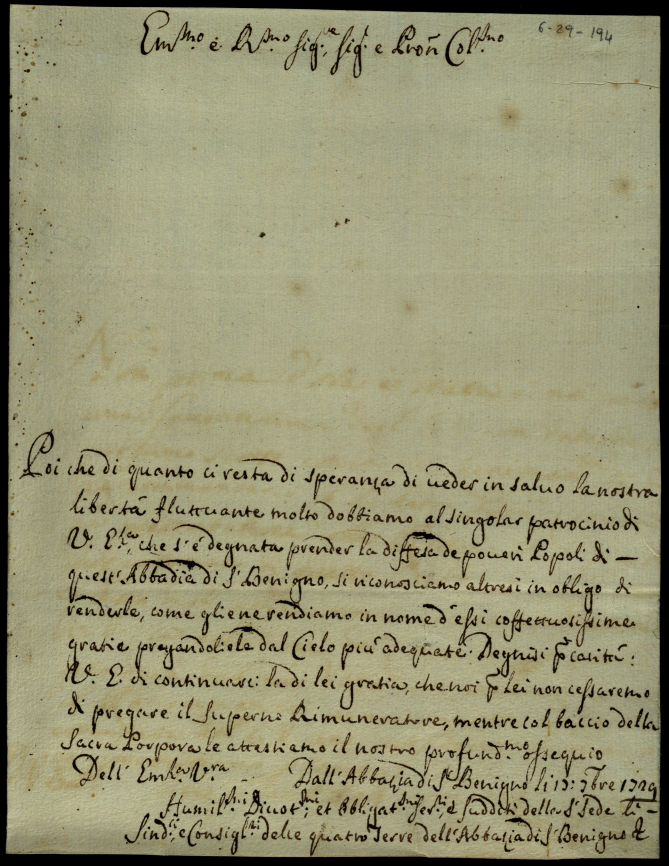 6-29-194
Em.mo e R.mo Sig.re, Sig.r e Pron Col.mo
Poi che di quanto ci resta di speranza di ueder in saluo la nostra
libertà fluttuante molto dobbiamo al singolar patrocinio di
V. E.za, che s'è degnata prender la diffesa de poueri Popoli di —
quest'Abbadia di S. Benigno, si riconosciamo altresi in obligo di
renderle, come gliene rendiamo in nome d'essi coffettuosissime
gratie pregandoliele dal Cielo più adequate. Degnisi p carità:
V. E. di continuarci la di lei gratia, che noi p lei non cessaremo
di pregare il Superno Rimuneratore, mentre col baccio della
Sacra Porpora le attestiamo il nostro profund.mo ossequio
Dell' Em.za V.ra Dall'Abbazia di S. Benigno li 17: 7bre 1729
Humil.mi Diuot.mi et Obbligat.mi Ser.ri e sudditi della S. Sede li —
Sind.ci e Consigl.ri delle quatro Terre dell'Abbazia di S. Benigno &